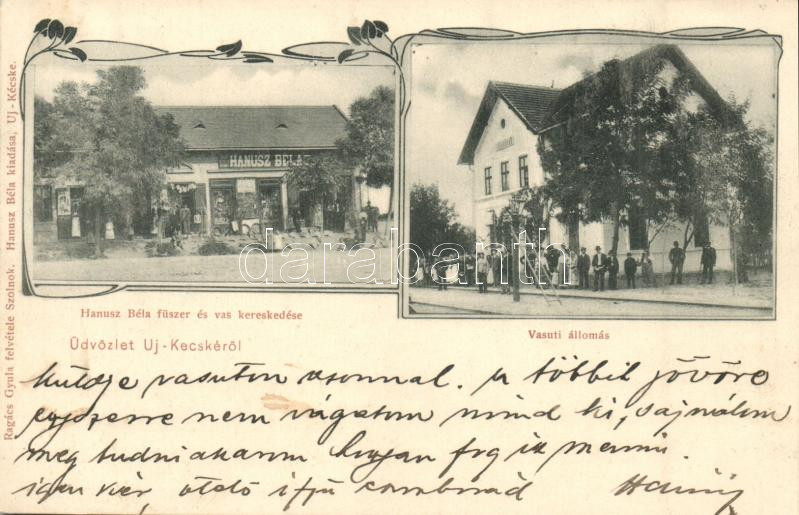 Ragács Gyula felvétele Szolnok. Hanusz Béla kiadása, Uj-Kécske.
HANUSZ BÉLA
darabanth
Hanusz Béla füszer és vas kereskedése
Vasuti állomás
Üdvözlet Uj-Kecskéről
küldje vasuton azonnal. A többit jövőre
egyszerre nem vágatom mind ki, sajnálom
meg tudni akarom hogyan fog ik menni.
igen kér,